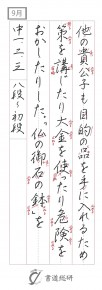 9月
他の貴公子も目的の品を手に入れるため
策を講じたり大金を使ったり危険を
おかしたりした。「仏の御石の鉢」を
中一・二・三 八段〜初段
書道総研